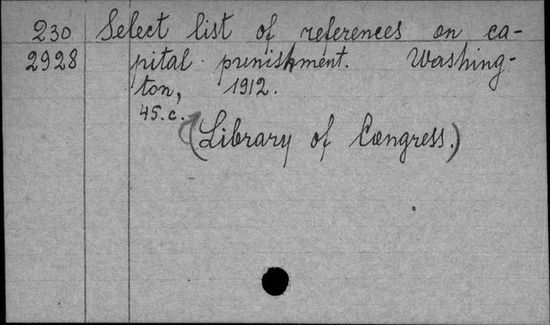 230 Select list of references on ca-
2928 pital punishment. Washing-
ton, 1912.
45. c.
(Library of Congress.)